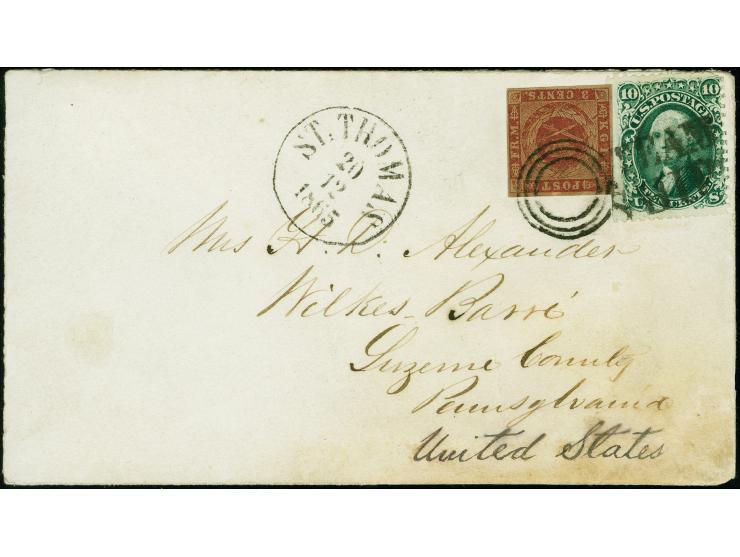 ST. THOMAS
20
12
1865
3 CENTS.
FR.M.
K G L
POST
10 10
U.S. POSTAGE
TEN CENTS
Mrs H. Alexander
Wilkes-Barré
Luzerne County
Pennsylvania
United States